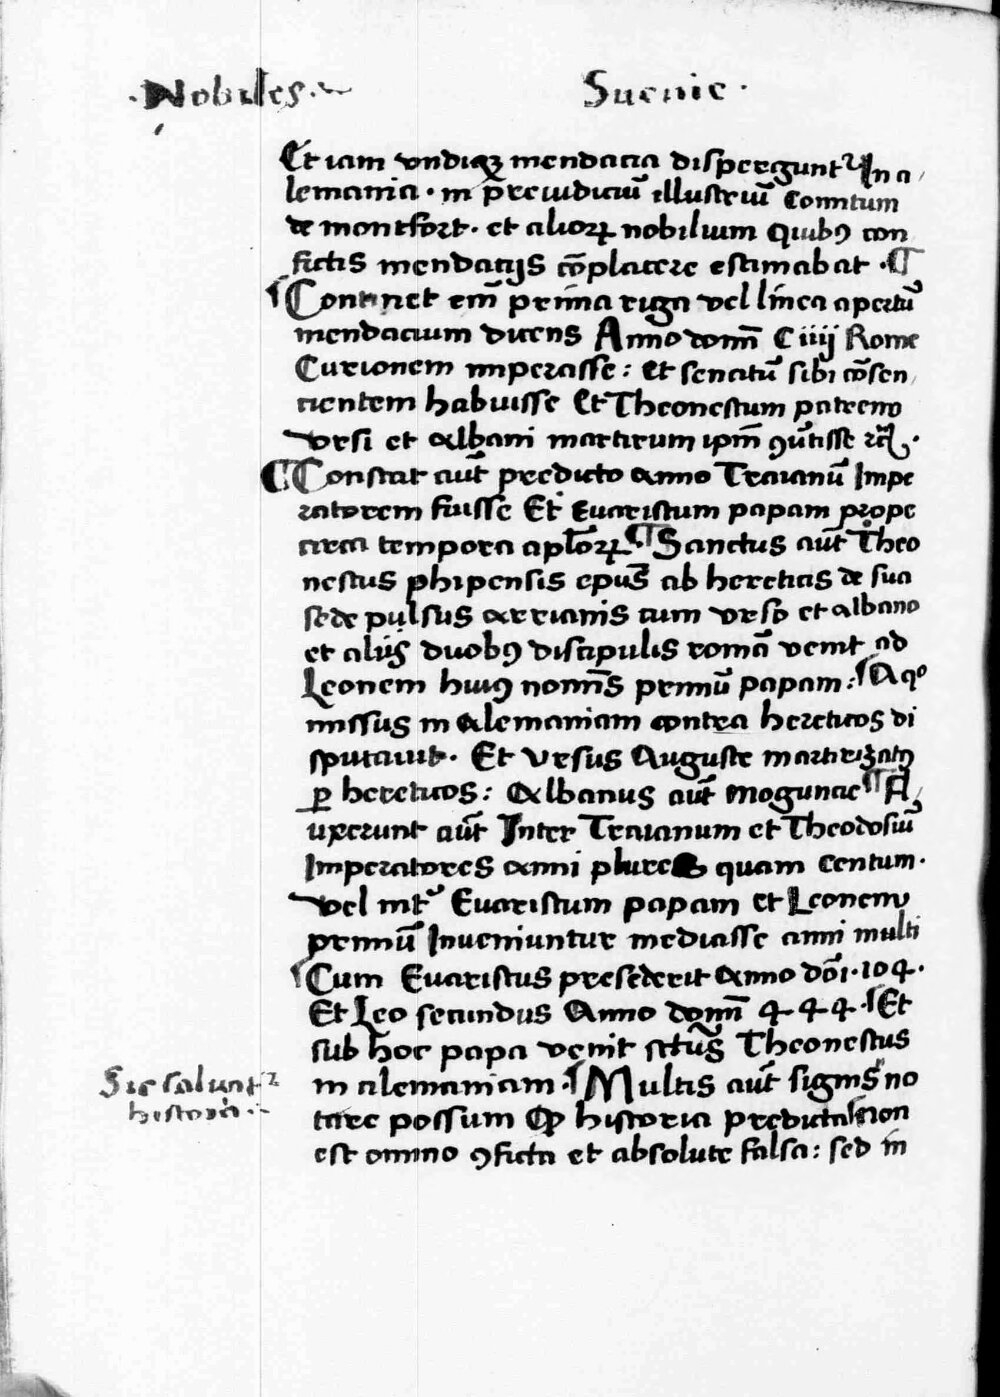 ·Nobiles·
Sueuie·
Et iam vndiqꝫ mendacia disperguntᷣ In a
lemania · in preiudiciū illustriū Comitum
de montfort · et alioꝝ nobilium Quibꝰ con
fictis mendacijs cōplacere estimabat · ¶
¶ Continet em̄ prima riga vel linea apertū
mendacium dicens Anno domī C iiij Rome
Curionem imperasse : Et senatū sibi cōsen
cientem habuisse Et Theonestum patrem
vrsi et Albani martirum ipm̄ ꝯūtisse
¶ Constat aūt predicto Anno Traianū Impe
ratorem fuisse Et Euaristum papam prope
circa tempora apl̄oꝝ ¶ Sanctus aūt Theo
nestus phipensis epūs ab hereticis de sua
sede pulsus arrianis cum vrso et albano
et alijs duobꝰ discipulis romā venit ad
Leonem huiꝰ nomīs primū papam : ¶ A qͦ
missus in Alemaniam contra hereticos di
sputauit · Et vrsus Auguste martirizatꝰ
ꝑ hereticos : Albanus aūt Moguncie ¶ Fl
uxerunt aūt Inter Traianum et Theodosiū
Imperatores anni plures quam Centum ·
vel int̄ Euaristum papam et Leonem
primū Inueniuntur mediasse anni multi
¶ Cum Euaristus presederit Anno dōi · 104 ·
Et Leo secundus Anno domī 444 · ¶ Et
sub hoc papa venit sctūs Theonestus
in alemaniam · ¶ Multis aūt signis no
tare possum Ꝙ historia predicta Non
est omino ꝯficta et absolute falsa : sed in
Sic saluatᷣ
historia ·